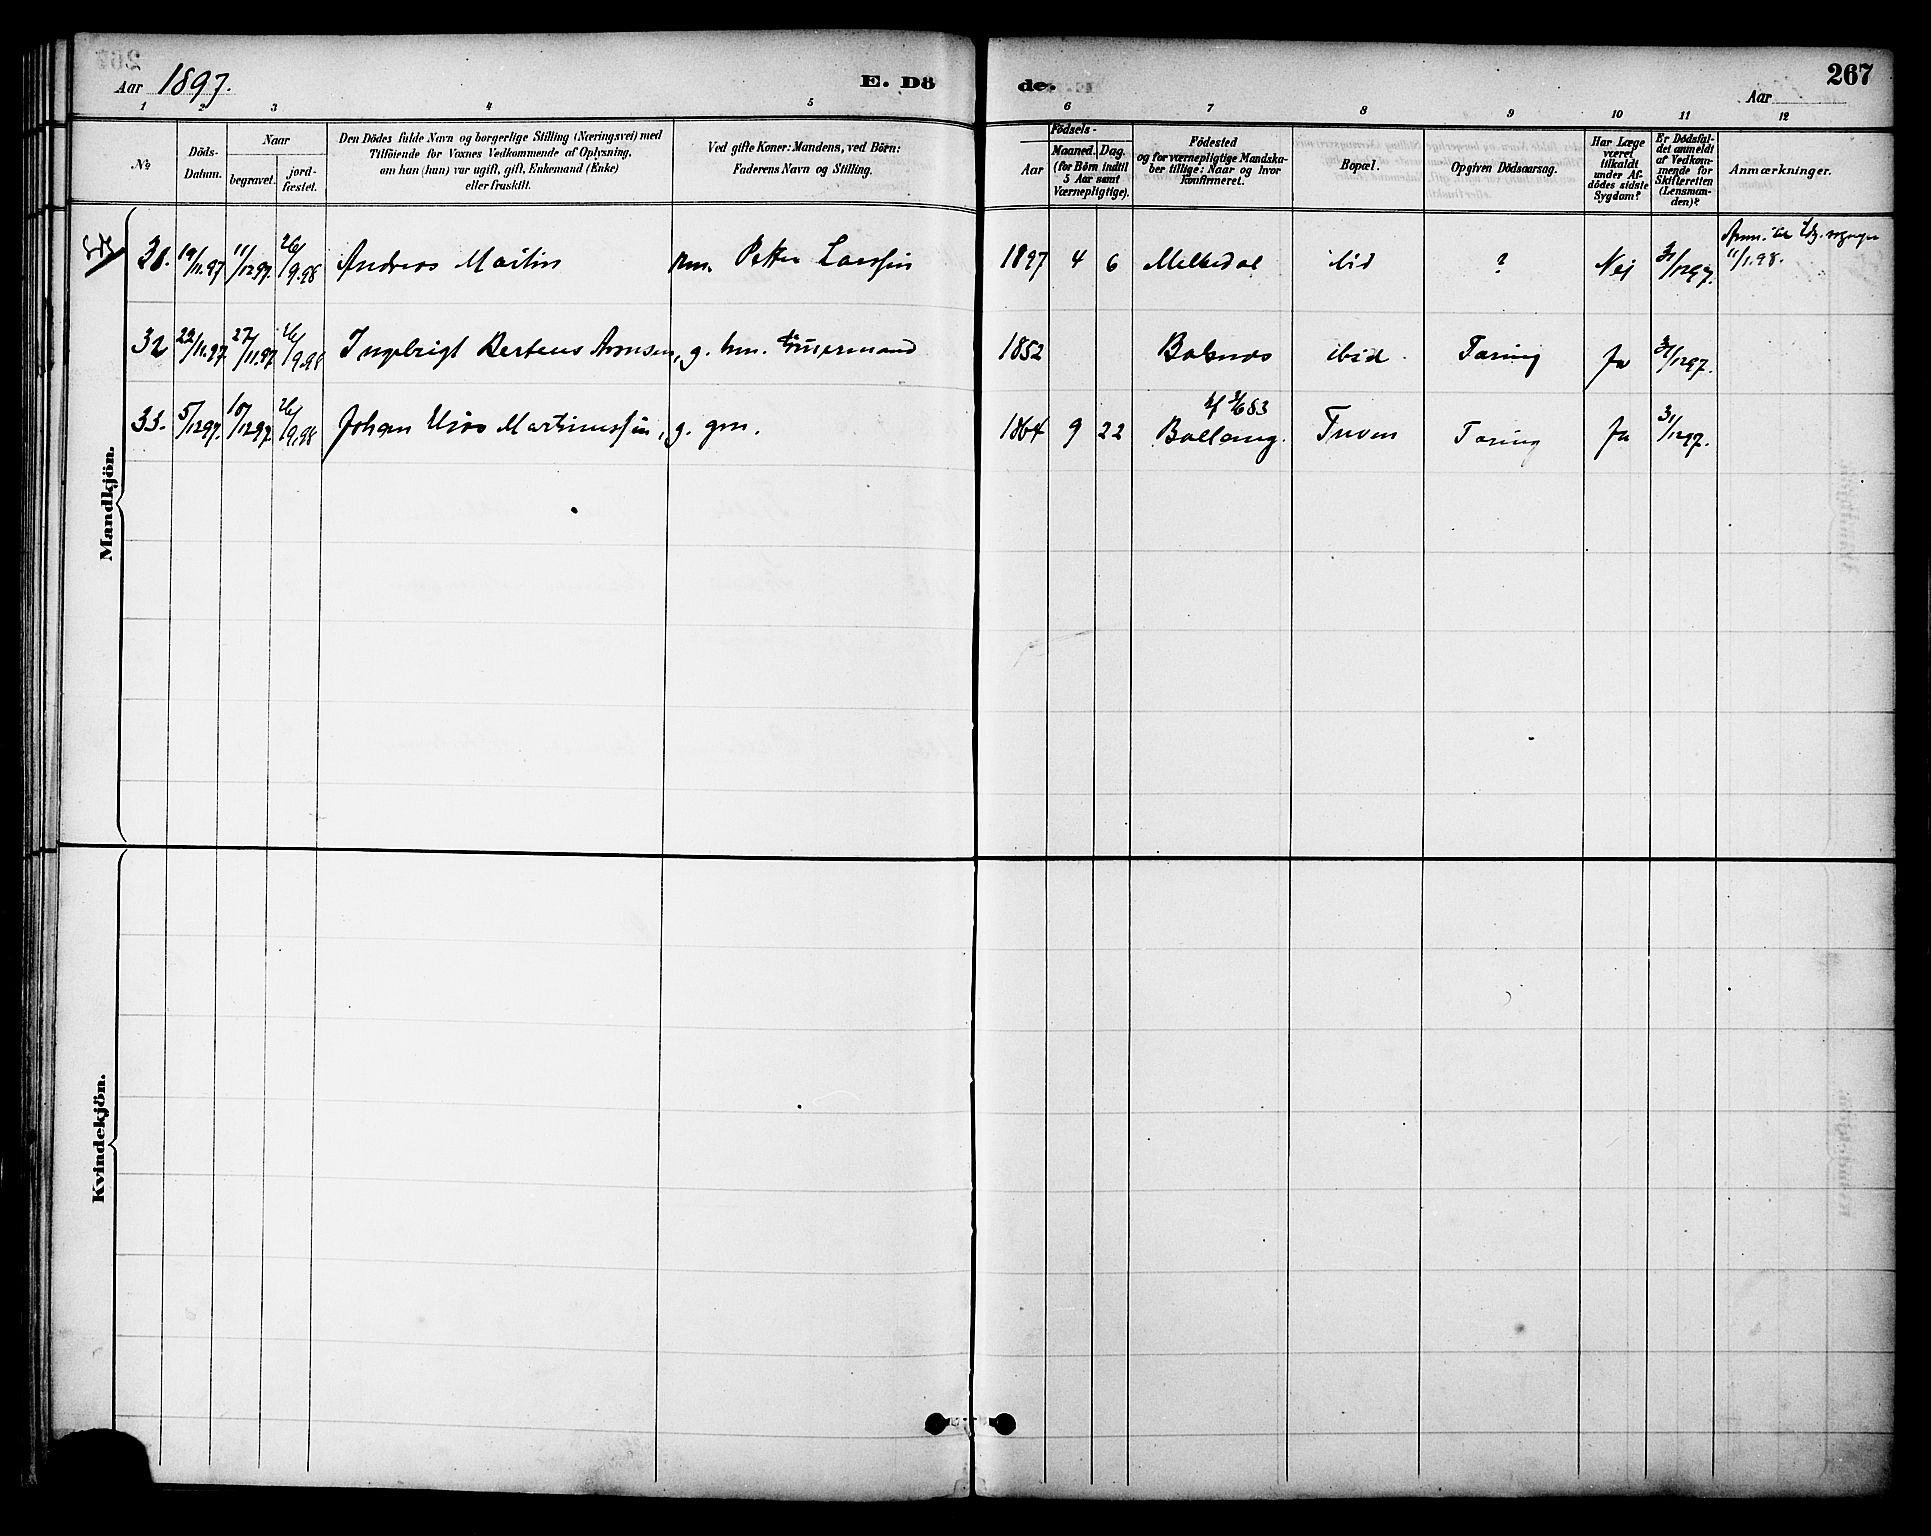 267
Aar 1897.
E. Dö
de.
Aar
1 2 3 4 5 6 7 8 9 10 11 12
No
Döds-
Datum.
Naar
begravet.
jord-
fæstet.
Den Dödes fulde Navn og borgerlige Stilling (Næringsvei) med
Tilföiende for Voxnes Vedkommende af Oplysning,
om han (hun) var ugift, gift, Enkemand (Enke)
eller fraskilt.
Ved gifte Koner: Mandens, ved Börn:
Faderens Navn og Stilling.
Födsels-
Aar
Maaned. Dag.
(for Börn indtil
5 Aar samt
Værnepligtige).
Födested
og for værnepligtige Mandska-
ber tillige: Naar og hvor
konfirmeret.
Bopæl.
Opgiven Dödsaarsag.
Har Læge
været
tilkaldt
under Af-
dödes sidste
Sygdom?
Er Dödsfal-
det anmeldt
af Vedkom-
mende for
Skifteretten
(Lensman-
den)?
Anmærkninger.
Mandkjön.
31. 19/11.97 11/1297. 26/9.98 Andreas Martin Petter Larssen 1897 4 6 Melkedal ibid ? Nei 31/1297. 11/1.98.
32 22/11.97 27/11.97 26/9.98 Ingebrigt Berteus Aronsen, g. 1852 ibid. Tæring Ja 31/1297.
33. 5/1297. 10/1297. 26/9.98 Johan Martinussen, g. gm. 1864 9 22 Ballang. Tæring Ja 31/1297.
Kvindekjön.